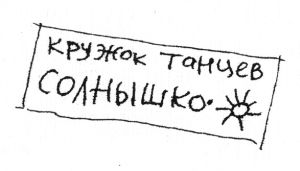 кружок танцев
солнышко.